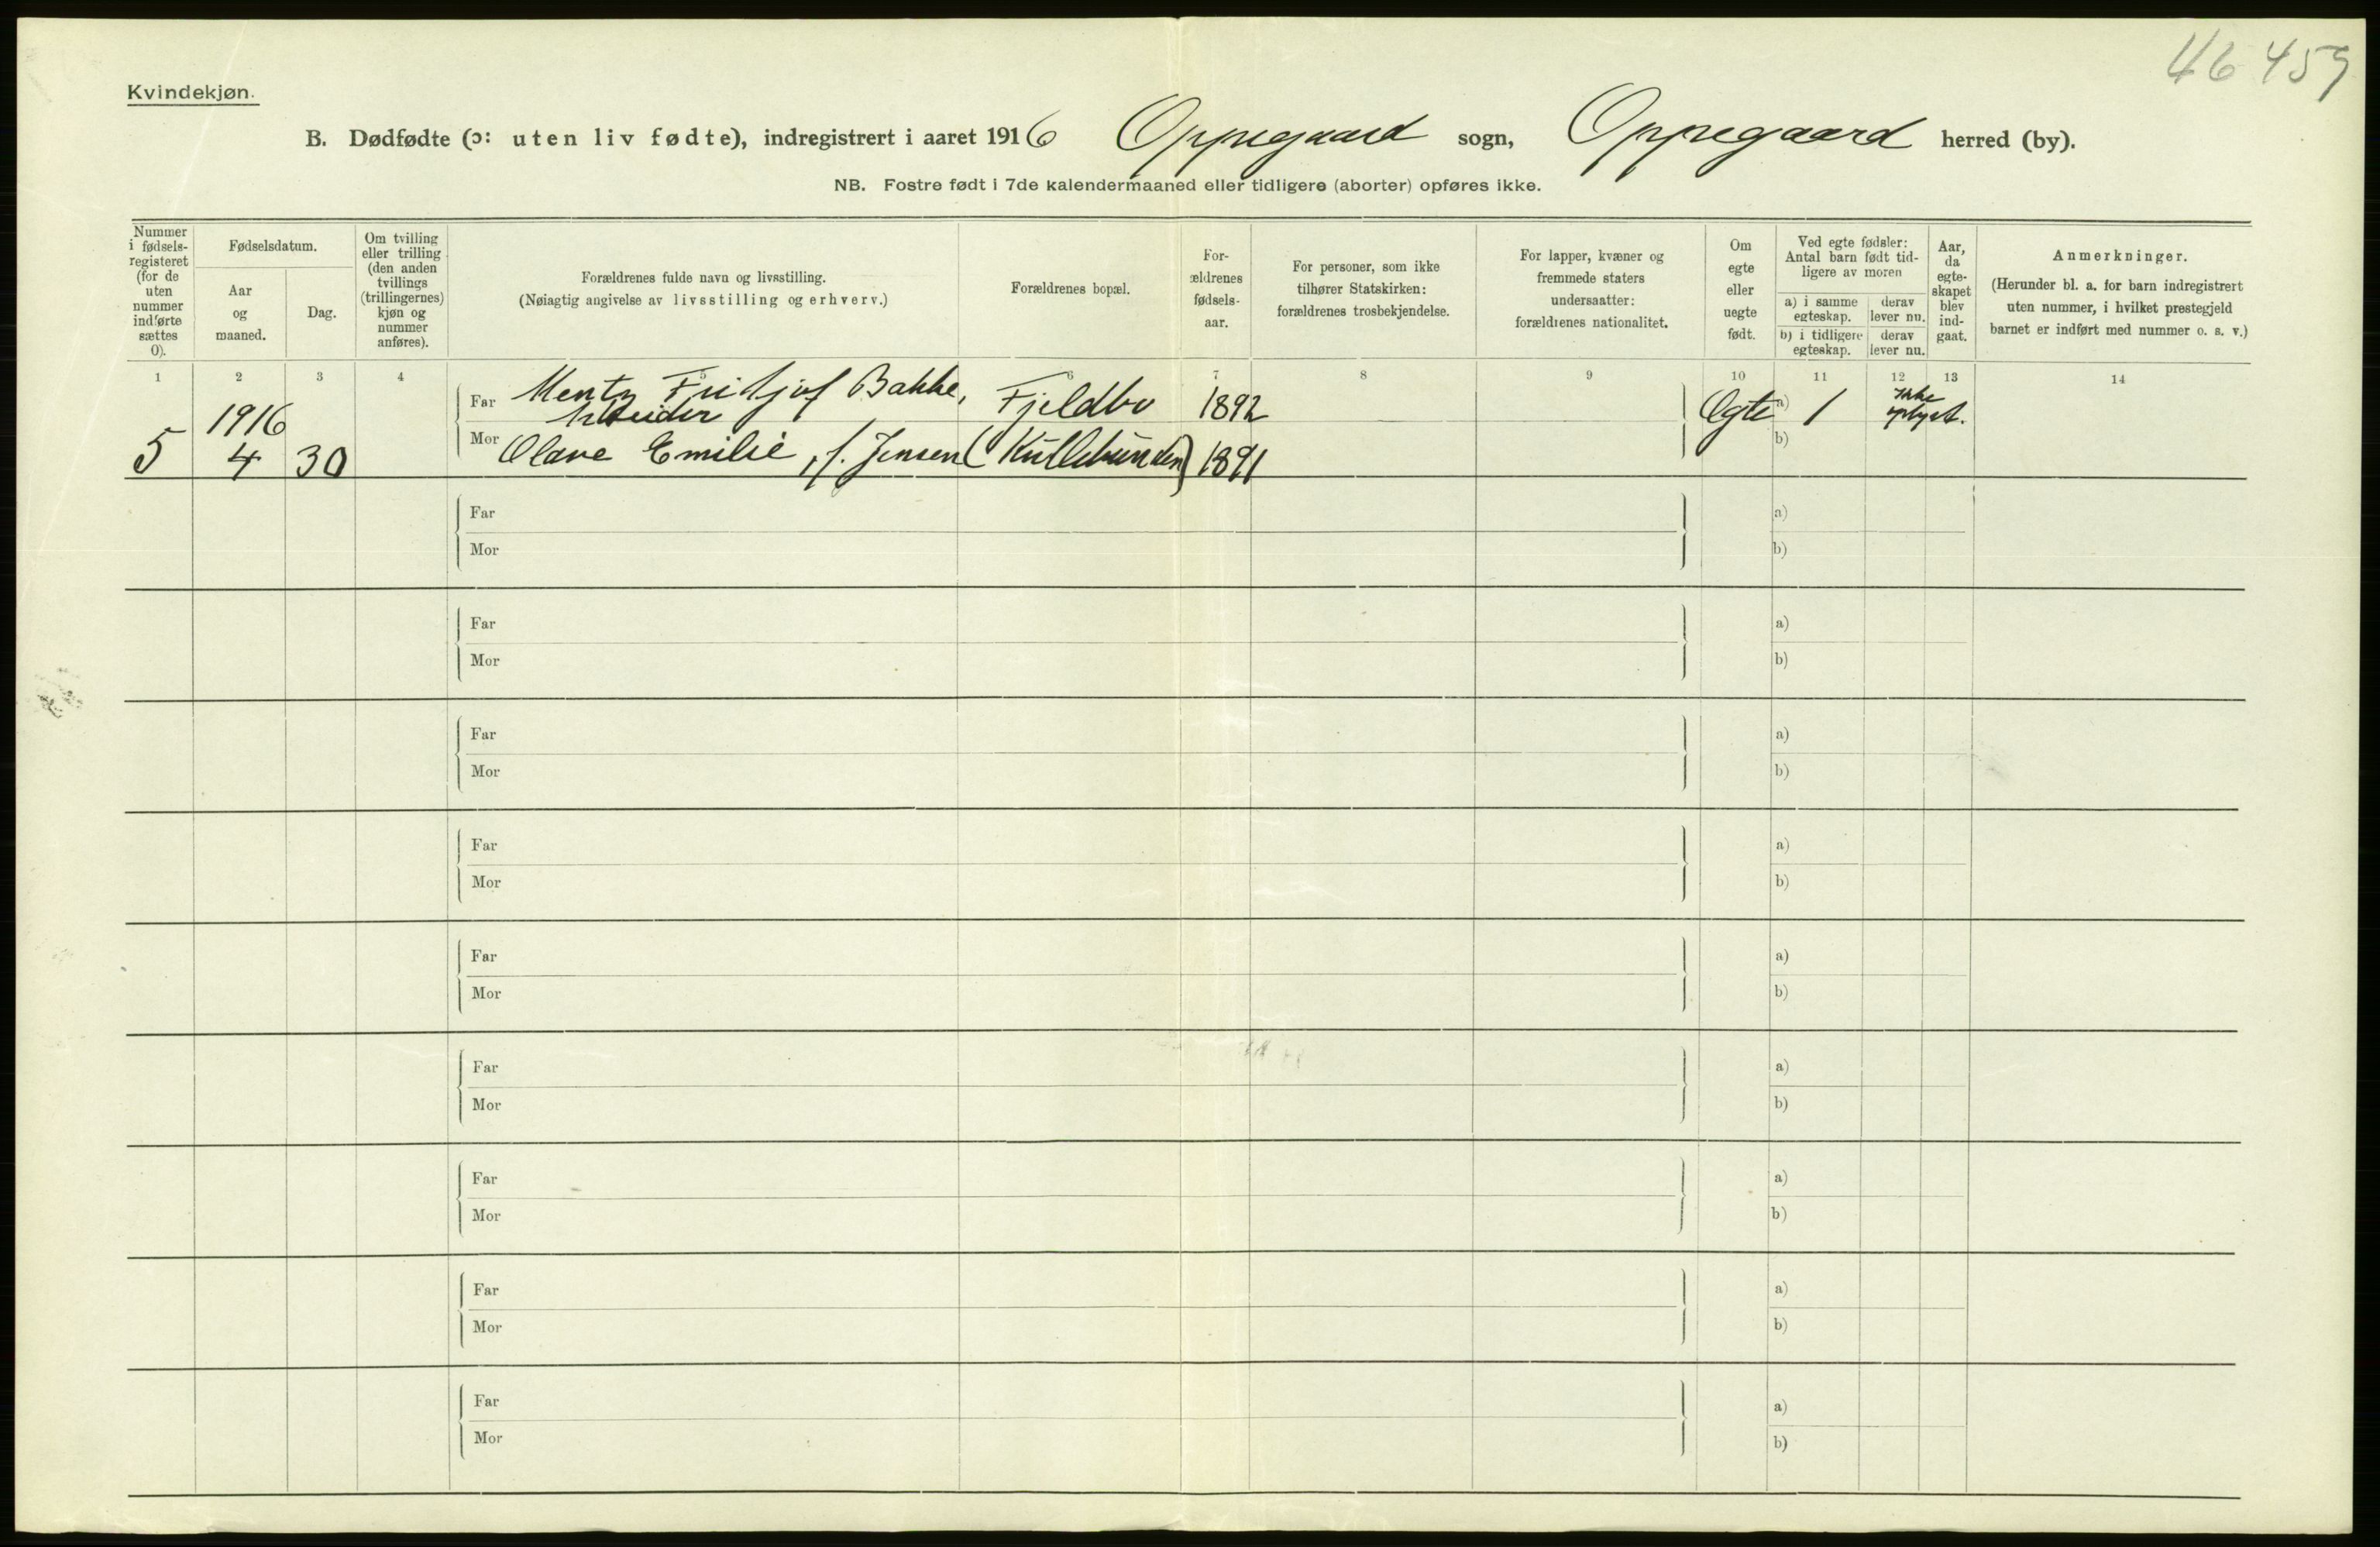 46 459
Kvindekjøn.
B. Dødfødte (ɔ: uten liv fødte), indregistrert i aaret 1916 Oppegaard sogn, Oppegaard herred (by).
NB. Fostre født i 7de kalendermaaned eller tidligere (aborter) opføres ikke.
Nummer
i fødsels-
registeret
(for de
uten
nummer
indførte
sættes
0).
Fødselsdatum.
Aar
og
maaned.
Dag.
Om tvilling
eller trilling
(den anden
tvillings
(trillingernes)
kjøn og
nummer
anføres).
Forældrenes fulde navn og livsstilling.
(Nøiagtig angivelse av livsstilling og erhverv.)
Forældrenes bopæl.
For-
ældrenes
fødsels-
aar.
For personer, som ikke
tilhører Statskirken:
forældrenes trosbekjendelse.
For lapper, kvæner og
fremmede staters
undersaatter:
forældrenes nationalitet.
Om
egte
eller
uegte
født.
Ved egte fødsler:
Antal barn født tid-
ligere av moren
a) i samme
egteskap.
derav
lever nu.
b) i tidligere
egteskap.
derav
lever nu.
Aar,
da
egte-
skapet
blev
ind-
gaat.
Anmerkninger.
(Herunder bl. a. for barn indregistrert
uten nummer, i hvilket prestegjeld
barnet er indført med nummer o. s. v.)
1 2 3 4 5 6 7 8 9 10 11 12 13 14
Far Mentz Fridtjof Bakke, Fjeldbo 1892 Egte a) 1 Ikke
1916 Arbeider oplyst.
5 4 30 Mor Olave Emilie, f. Jensen (Kullebunden) 1891 b)
Far a)
Mor b)
Far a)
Mor b)
Far a)
Mor b)
Far a)
Mor b)
Far a)
Mor b)
Far a)
Mor b)
Far a)
Mor b)
Far a)
Mor b)
Far a)
Mor b)